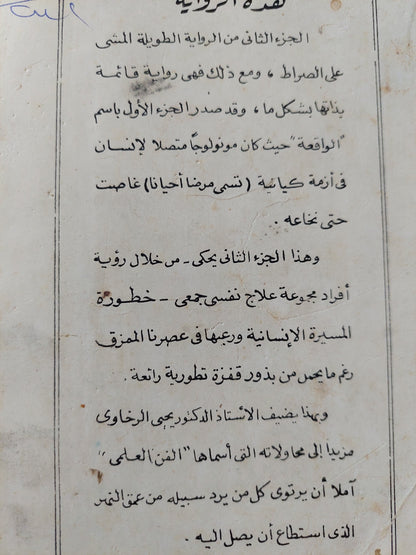 هذه الرواية
الجزء الثانى من الرواية الطويلة المشى
على الصراط ، ومع ذلك فهى رواية قائمة
بذاتها بشكل ما ، وقد صدر الجزء الأول باسم
"الواقعة" حيث كان مونولوجاً متصلا لإنسان
فى أزمة كيانية (تسمى مرضا أحيانا) غاصت
حتى نخاعه .
وهذا الجزء الثانى يحكى - من خلال رؤية
أفراد مجموعة علاج نفسى جمعى - خطورة
المسيرة الإنسانية ورعبها فى عصرنا الممزق
رغم ما يحمل من بذور قفزة تطورية رائعة .
وبهذا يضيف الأستاذ الدكتور يحيى الرخاوى
مزيدا إلى محاولاته التى أسماها "الفن العلمى"
آملا أن يرتوى كل من يرد سبيله من عمق النهر
الذى استطاع أن يصل اليه .